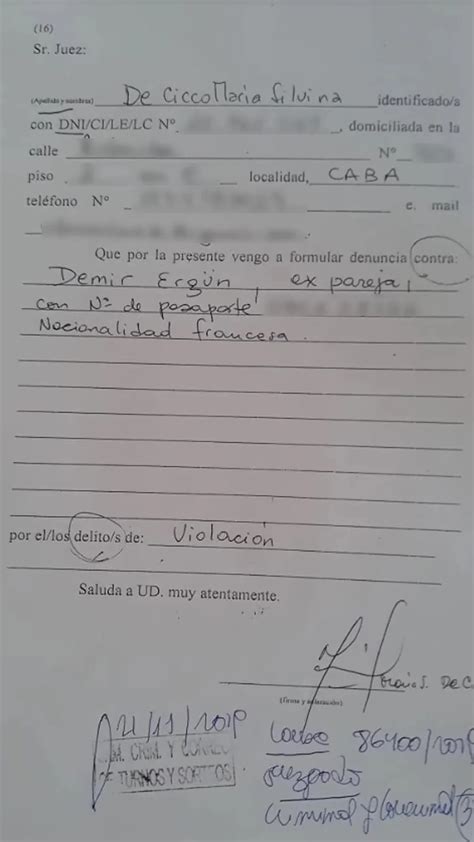 (16)
Sr. Juez:
(Apellido y nombres) De Cicco Maria Silvina identificado/a
con DNI/CI/LE/LC Nº , domiciliada en la
calle Nº
piso localidad, CABA
teléfono Nº e. mail
Que por la presente vengo a formular denuncia contra:
Demir Ergün, ex pareja,
con Nº de pasaporte
Nacionalidad francesa.
por el/los delito/s de: Violación
Saluda a UD. muy atentamente.
Maria S. De C
(Firma y aclaración)
21/11/2019
CRIM. Y
DE TURNOS Y SORTEOS
Causa 86400/2019
Juzgado
Criminal y Correccional 3